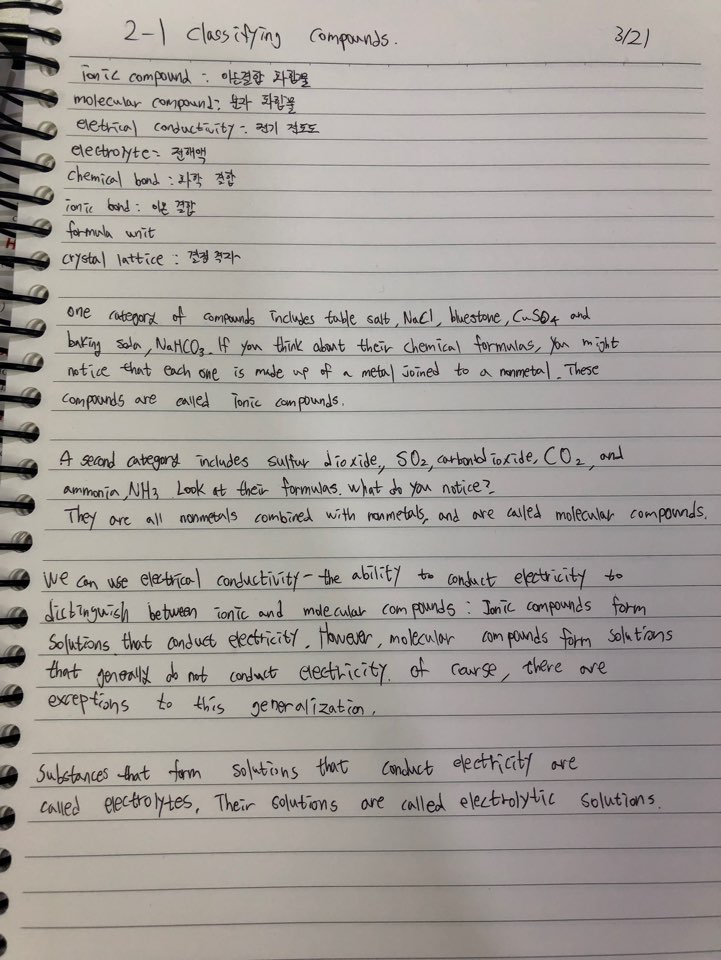 2-1 Classifying Compounds. 3/21
ionic compound : 이온결합 화합물
molecular compound : 분자 화합물
eletrical conductivity : 전기 전도도
electrolyte : 전해액
chemical bond : 화학 결합
ionic bond : 이온 결합
formula unit
crystal lattice : 결정 격자
One category of compounds includes table salt, NaCl, bluestone, CuSO4 and
baking soda, NaHCO3. If you think about their chemical formulas, you might
notice that each one is made up of a metal joined to a nonmetal. These
compounds are called ionic compounds.
A second category includes sulfur dioxide, SO2, carbond dioxide, CO2, and
ammonia, NH3. Look at their formulas. what do you notice?
They are all nonmetals combined with nonmetals, and are called molecular compounds.
We can use electrical conductivity - the ability to conduct electricity to
distinguish between ionic and molecular compounds : Ionic compounds form
solutions that conduct electricity. However, molecular compounds form solutions
that generally do not conduct electricity. of course, there are
exceptions to this generalization.
Substances that form solutions that conduct electricity are
called electrolytes. Their solutions are called electrolytic solutions.